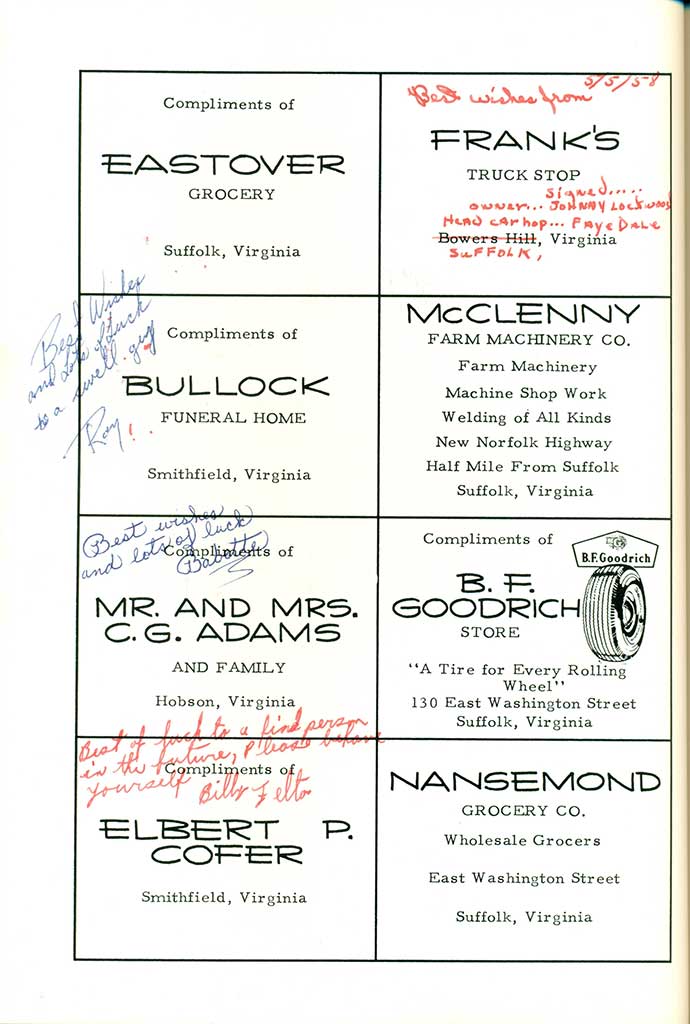 Compliments of
EASTOVER
GROCERY
Suffolk, Virginia
5/5/58
Best wishes from
FRANK'S
TRUCK STOP
Signed.....
owner... JOHNNY LOCKWOOD
HEAD CAR hop... FAYE DALE
Bowers Hill, Virginia
SUFFOLK,
Best Wishes
and Lots of Luck
to a swell guy
Ray!
Compliments of
BULLOCK
FUNERAL HOME
Smithfield, Virginia
McCLENNY
FARM MACHINERY CO.
Farm Machinery
Machine Shop Work
Welding of All Kinds
New Norfolk Highway
Half Mile From Suffolk
Suffolk, Virginia
Best wishes
and lots of luck
Babotte
Compliments of
MR. AND MRS.
C.G. ADAMS
AND FAMILY
Hobson, Virginia
Compliments of
B.F.Goodrich
B. F.
GOODRICH
STORE
"A Tire for Every Rolling
Wheel"
130 East Washington Street
Suffolk, Virginia
Best of luck to a find person
in the future, please behave
yourself
Billy Felton
Compliments of
ELBERT P.
COFER
Smithfield, Virginia
NANSEMOND
GROCERY CO.
Wholesale Grocers
East Washington Street
Suffolk, Virginia